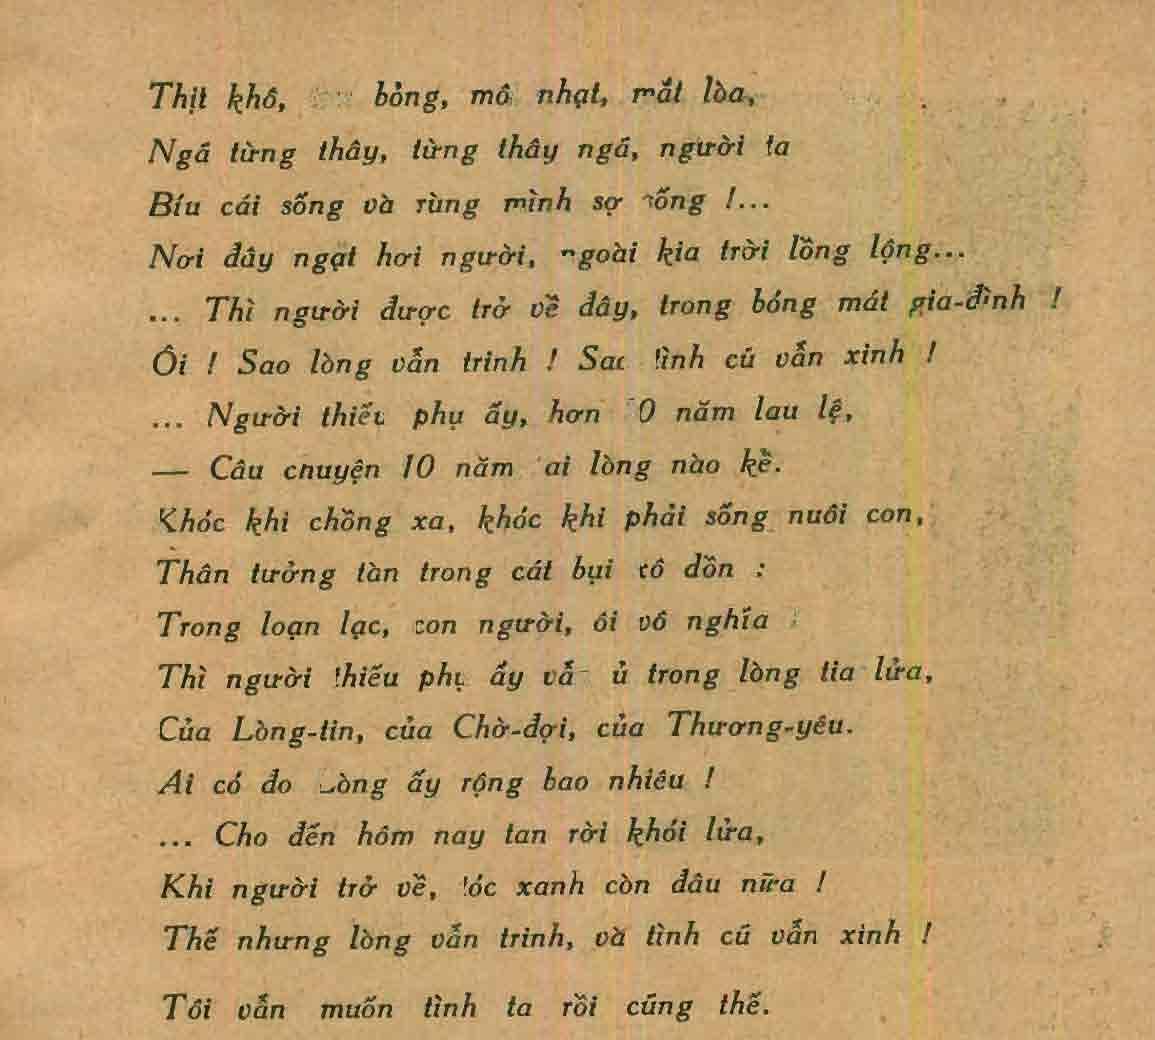 Thịt khô, bỏng, mô nhạt, mắt lòa,
Ngã từng thây, từng thây ngã, người ta
Bíu cái sống và rùng mình sợ sống !...
Nơi đây ngạt hơi người, ngoài kia trời lồng lộng...
... Thì người được trở về đây, trong bóng mát gia-đình !
Ôi ! Sao lòng vẫn trinh ! Sao tình cũ vẫn xinh !
... Người thiếu phụ ấy, hơn 10 năm lau lệ,
— Câu chuyện 10 năm ai lòng nào kề.
Khóc khi chồng xa, khóc khi phải sống nuôi con,
Thân tưởng tàn trong cát bụi cô dồn :
Trong loạn lạc, con người, ôi vô nghĩa
Thì người thiếu phụ ấy vẫn ủ trong lòng tia lửa,
Của Lòng-tin, của Chờ-đợi, của Thương-yêu.
Ai có đo Lòng ấy rộng bao nhiêu !
... Cho đến hôm nay tan rời khói lửa,
Khi người trở về, tóc xanh còn đâu nữa !
Thế nhưng lòng vẫn trinh, và tình cũ vẫn xinh !
Tôi vẫn muốn tình ta rồi cũng thế.